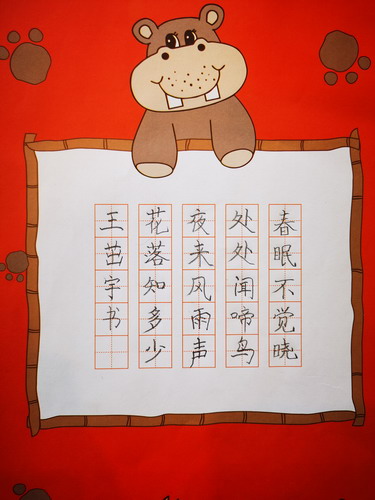 春眠不觉晓
处处闻啼鸟
夜来风雨声
花落知多少
王茁宇书